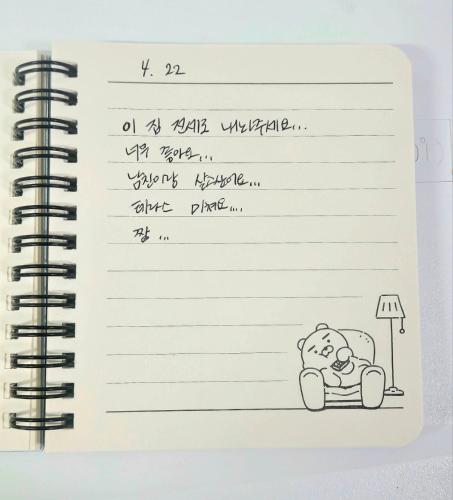 4. 22
이 집 전세로 내놔주세요...
너무 좋아요...
남친이랑 살고싶어요...
테라스 미쳐요....
짱 ...